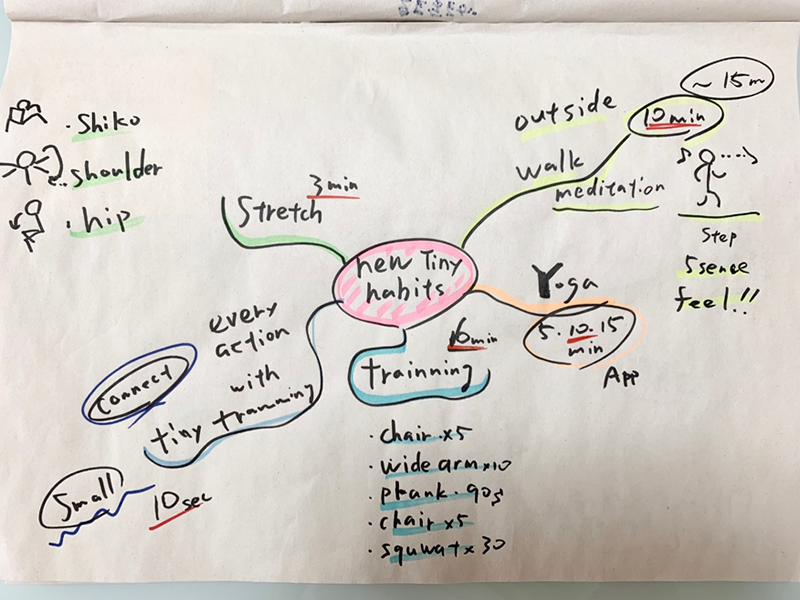 new Tiny
habits
Stretch
3min
. Shiko
shoulder
. hip
outside
walk
meditation
10min
~15m
Step
5sense
feel!!
Yoga
5.10.15
min
App
trainning
min
· chair x5
· wide arm x10
· plank . 90s
· chair x5
· squwat x 30
every
action
with
tiny tranning
connect
Small
10sec